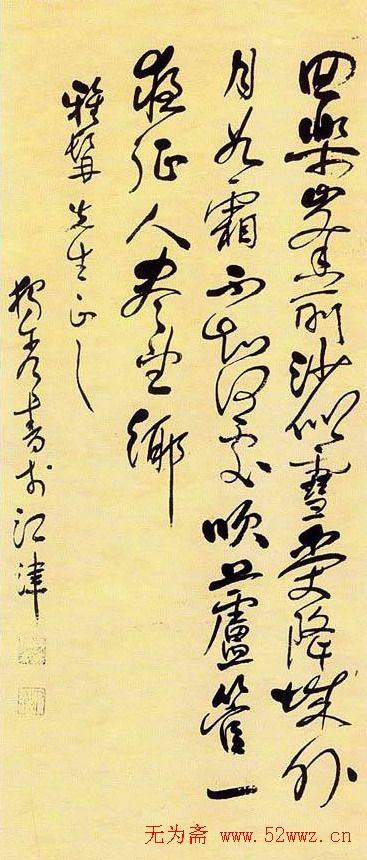 回樂峰前沙似雪受降城外
月如霜不知何處吹蘆管一
夜征人盡望鄉
雅髯先生正之
獨秀書於江津
无为斋 www.52wwz.cn